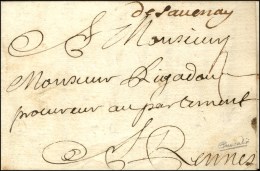 de Savenay
A Monsieur
Monsieur Rigadou
procureur au parlement
A Rennes